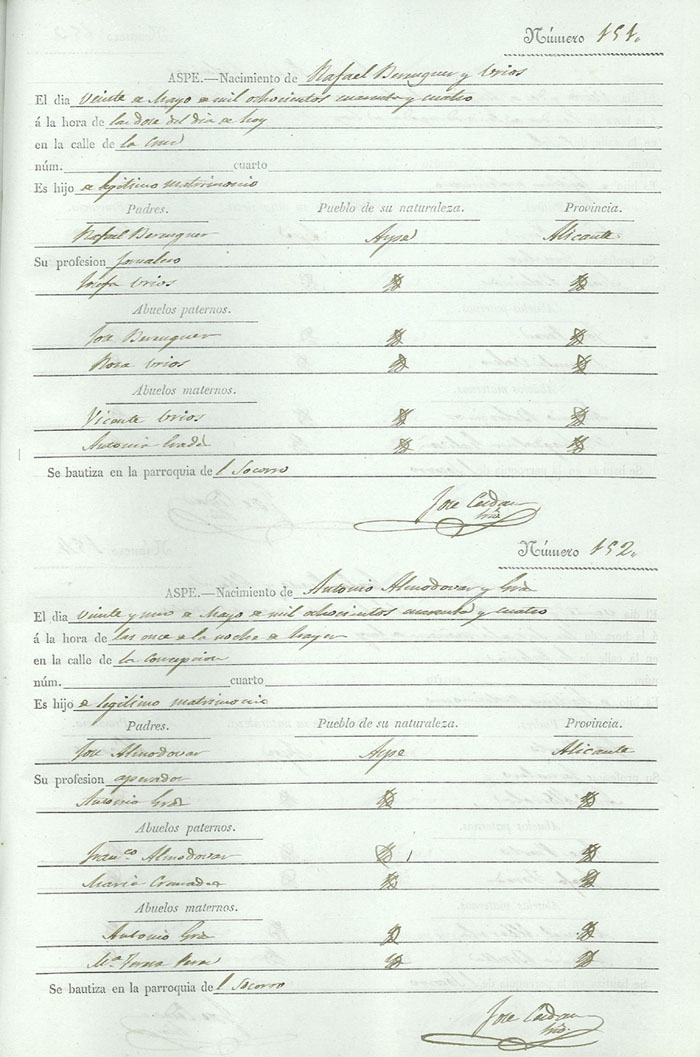 Número 151.
ASPE.—Nacimiento de Rafael Berenguer y Urios
El dia veinte de Mayo de mil ochocientos cuarenta y cuatro
á la hora de las doce del dia de hoy
en la calle de la Cruz
núm. cuarto
Es hijo de legitimo matrimonio
Padres. Pueblo de su naturaleza. Provincia.
Rafael Berenguer Aspe Alicante
Su profesion jornalero
Josefa Urios
Abuelos paternos.
Jose Berenguer
Rosa Urios
Abuelos maternos.
Vicente Urios
Antonia
Se bautiza en la parroquia de l Socorro
Jose
Número 152.
ASPE.—Nacimiento de Antonio Almodovar y
El dia veinte y uno de Mayo de mil ochocientos cuarenta y cuatro
á la hora de las once de la noche de hayer
en la calle de la Concepcion
núm. cuarto
Es hijo de legitimo matrimonio
Padres. Pueblo de su naturaleza. Provincia.
Jose Almodovar Aspe Alicante
Su profesion operador
Antonia
Abuelos paternos.
Fran.co Almodovar
Maria Cremades
Abuelos maternos.
Antonio
M.a Teresa
Se bautiza en la parroquia de l Socorro
Jose